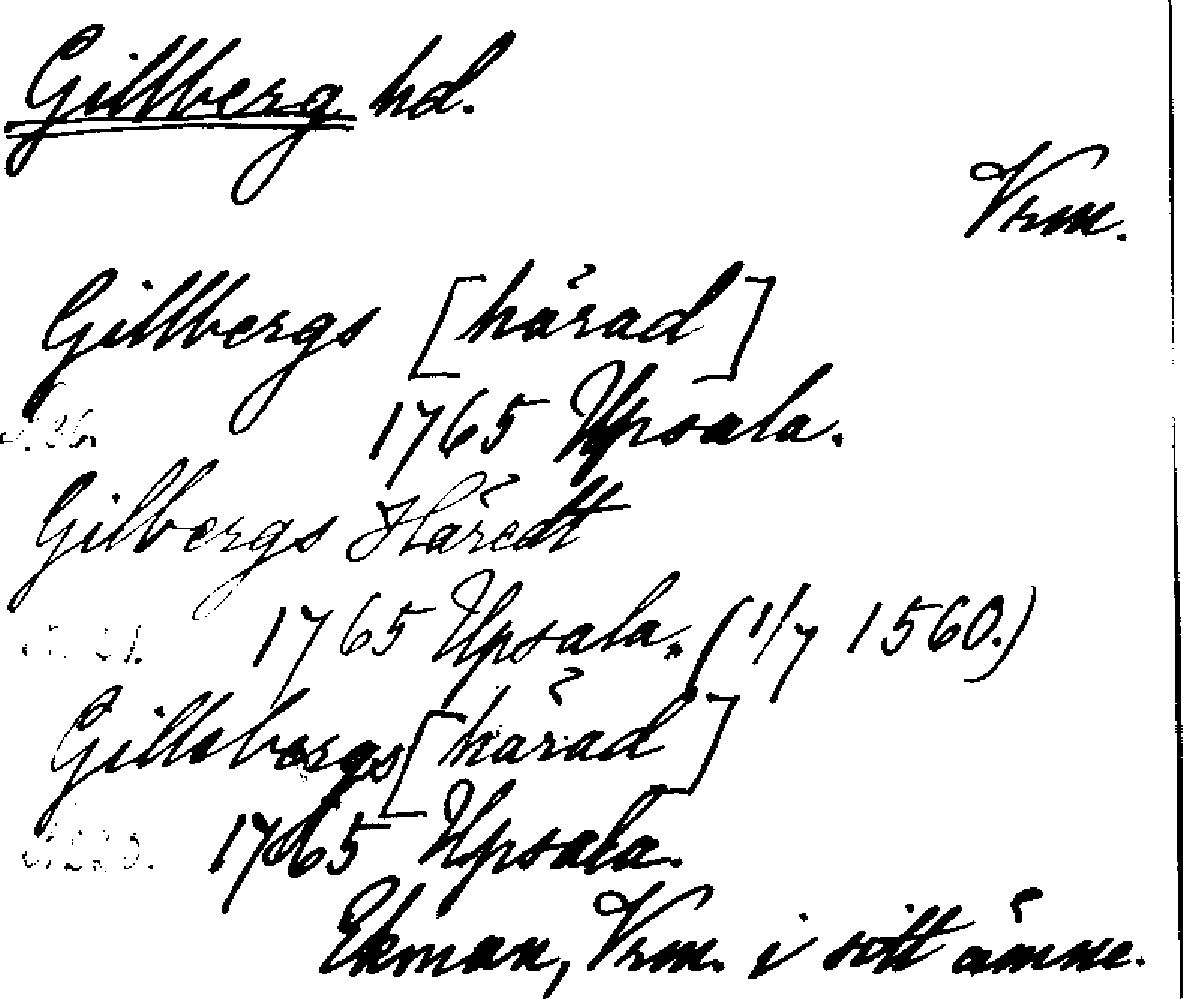 Gillberg hd.
Vrm.
Gillbergs [härad]
1765 Upsala.
Gilbergs Häredt
1765 Upsala. (1/7 1560.)
Gillebergs [härad]
1765 Upsala.
Ekman, Vrm. i sitt ämne.